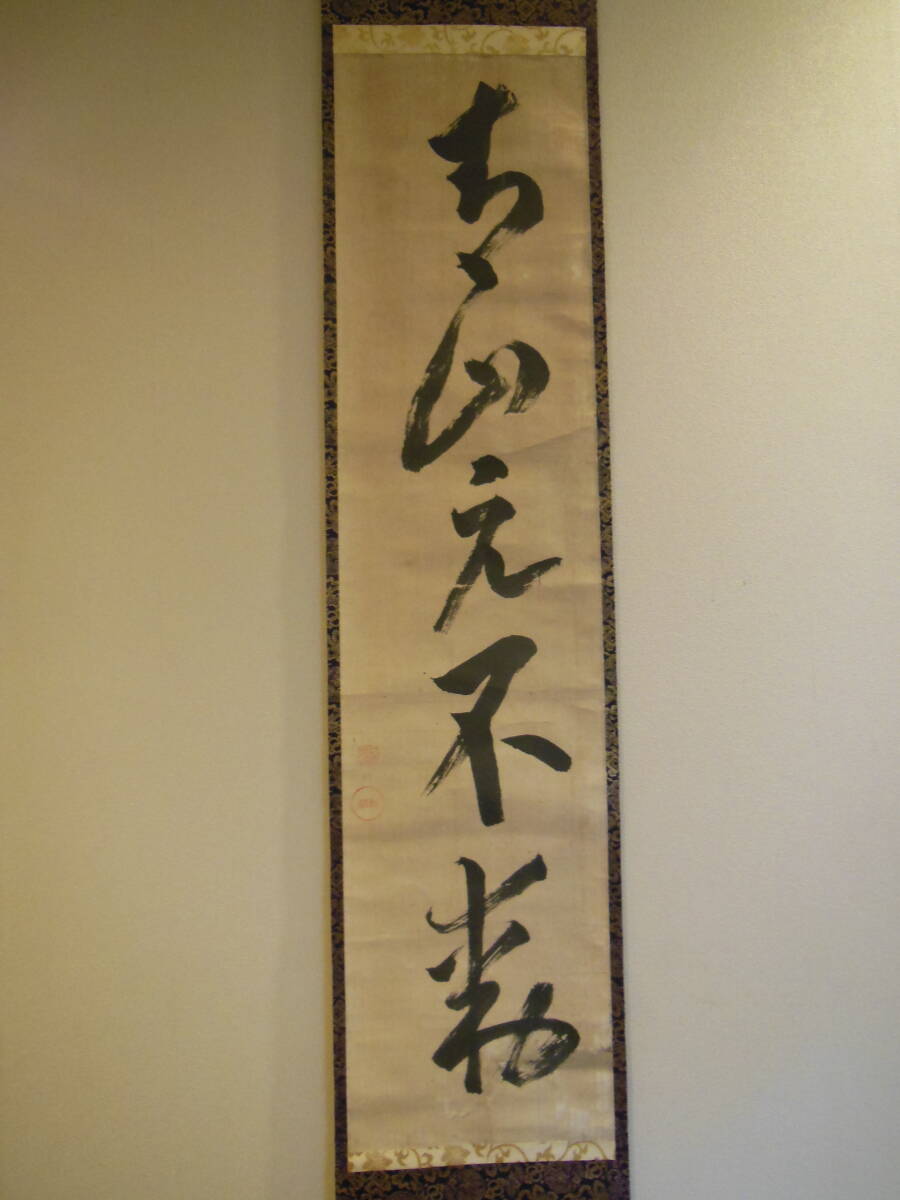 青山元不動